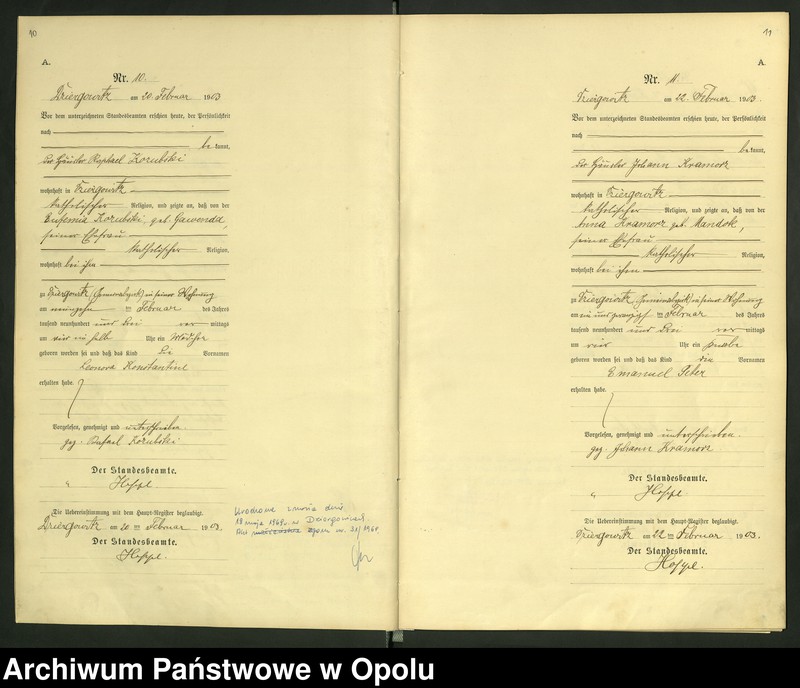 10
A.
Nr. 10.
Dziergowitz am 20. Februar 1903
Vor dem unterzeichneten Standesbeamten erschien heute, der Persönlichkeit
nach
be kannt,
der Häusler Raphael Kozubski
wohnhaft in Dziergowitz
katholischer Religion, und zeigte an, daß von der
Eufemia Kozubski, geb. Gawenda,
seiner Ehefrau
katholischer Religion,
wohnhaft bei ihm
zu Dziergowitz in seiner Wohnung
am neunzehn ten Februar des Jahres
tausend neunhundert und drei vor mittags
um ein halb Uhr ein Mädchen
geboren worden sei und daß das Kind die Vornamen
Leonora Konstantine
erhalten habe.
Vorgelesen, genehmigt und unterschrieben.
gez. Rafael Kozubski
Der Standesbeamte.
Die Uebereinstimmung mit dem Haupt-Register beglaubigt.
Dziergowitz am 20 ten Februar 1903.
Der Standesbeamte.
zmarła dnia
19 maja 1969 r. w Dziergowicach
Akt zgonu nr. 31/1969.
11
A.
Nr. 11.
Dziergowitz am 22. Februar 1903.
Vor dem unterzeichneten Standesbeamten erschien heute, der Persönlichkeit
nach
be kannt,
der Häusler Johann Kramorz
wohnhaft in Dziergowitz
katholischer Religion, und zeigte an, daß von der
Anna Kramorz geb. Mandok,
seiner Ehefrau
katholischer Religion,
wohnhaft bei ihm
zu Dziergowitz in seiner Wohnung
am ein und zwanzigsten Februar des Jahres
tausend neunhundert und drei vor mittags
um Uhr ein Knabe
geboren worden sei und daß das Kind die Vornamen
Emanuel Peter
erhalten habe.
Vorgelesen, genehmigt und unterschrieben.
gez. Johann Kramorz
Der Standesbeamte.
Die Uebereinstimmung mit dem Haupt-Register beglaubigt.
Dziergowitz am 22 ten Februar 1903.
Der Standesbeamte.
Archiwum Państwowe w Opolu